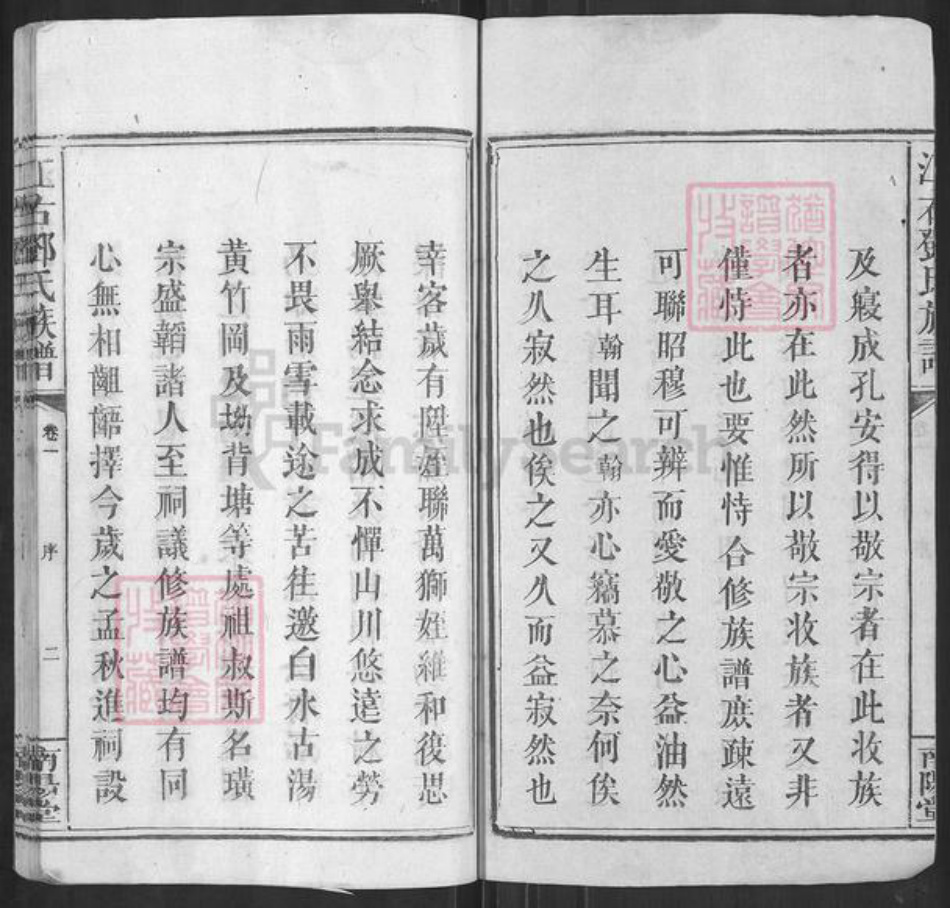 及寢成孔安得以敬宗者在此收族
者亦在此然所以敬宗收族者又非
僅恃此也要惟恃合修族譜庶疎遠
可聯昭穆可辨而愛敬之心益油然
生耳翰聞之翰亦心竊慕之奈何俟
之久寂然也俟之又久而益寂然也
幸客歲有陞姪聯萬獅姪維和復思
厥舉結念求成不憚山川悠遠之勞
不畏雨雪載途之苦往邀白水古湯
黃竹岡及坳背塘等處祖叔斯名璜
宗盛韜諸人至祠議修族譜均有同
心無相齟齬擇今歲之孟秋進祠設
江右鄧氏族譜
卷一
序
二
南陽堂
FamilySearch